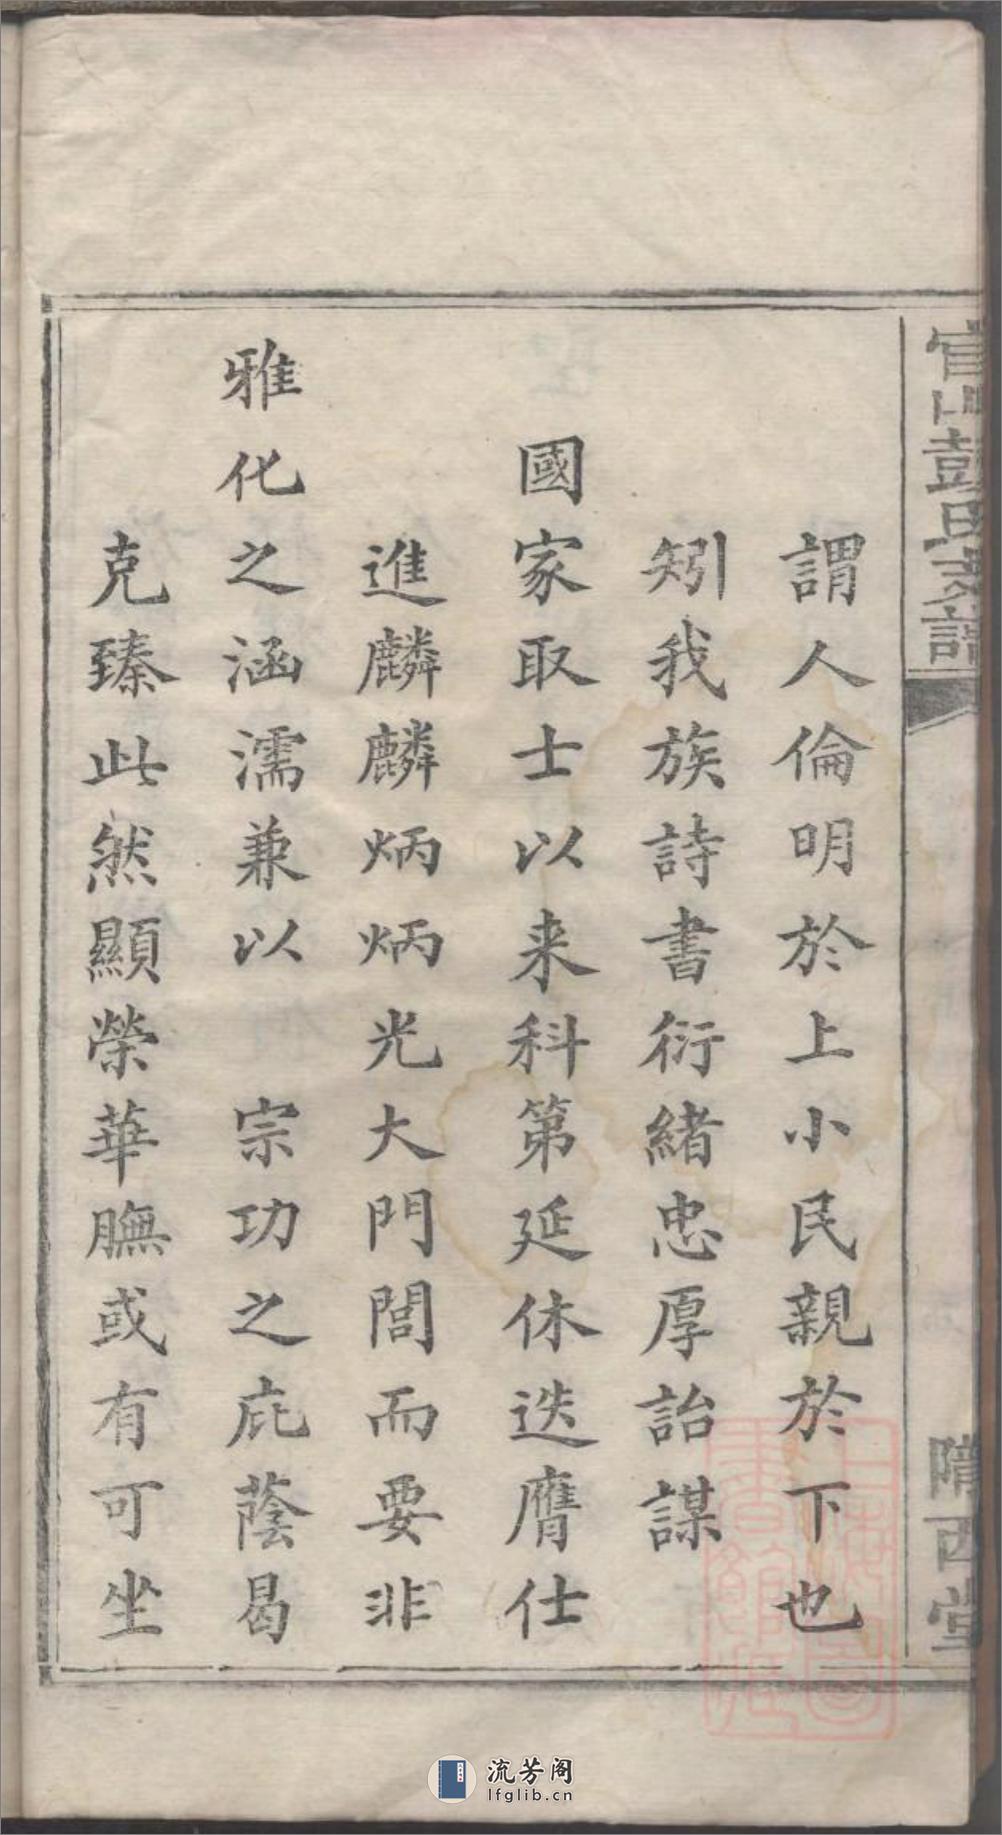 官山彭氏支譜
隋西堂
謂人倫明於上小民親於下也
矧我族詩書衍緒忠厚詒謀
國家取士以来科第延休迭膺仕
進麟麟炳炳光大門閭而要非
雅化之涵濡兼以 宗功之庇蔭曷
克臻此然顯榮華膴或有可坐
流芳阁
lfglib.cn